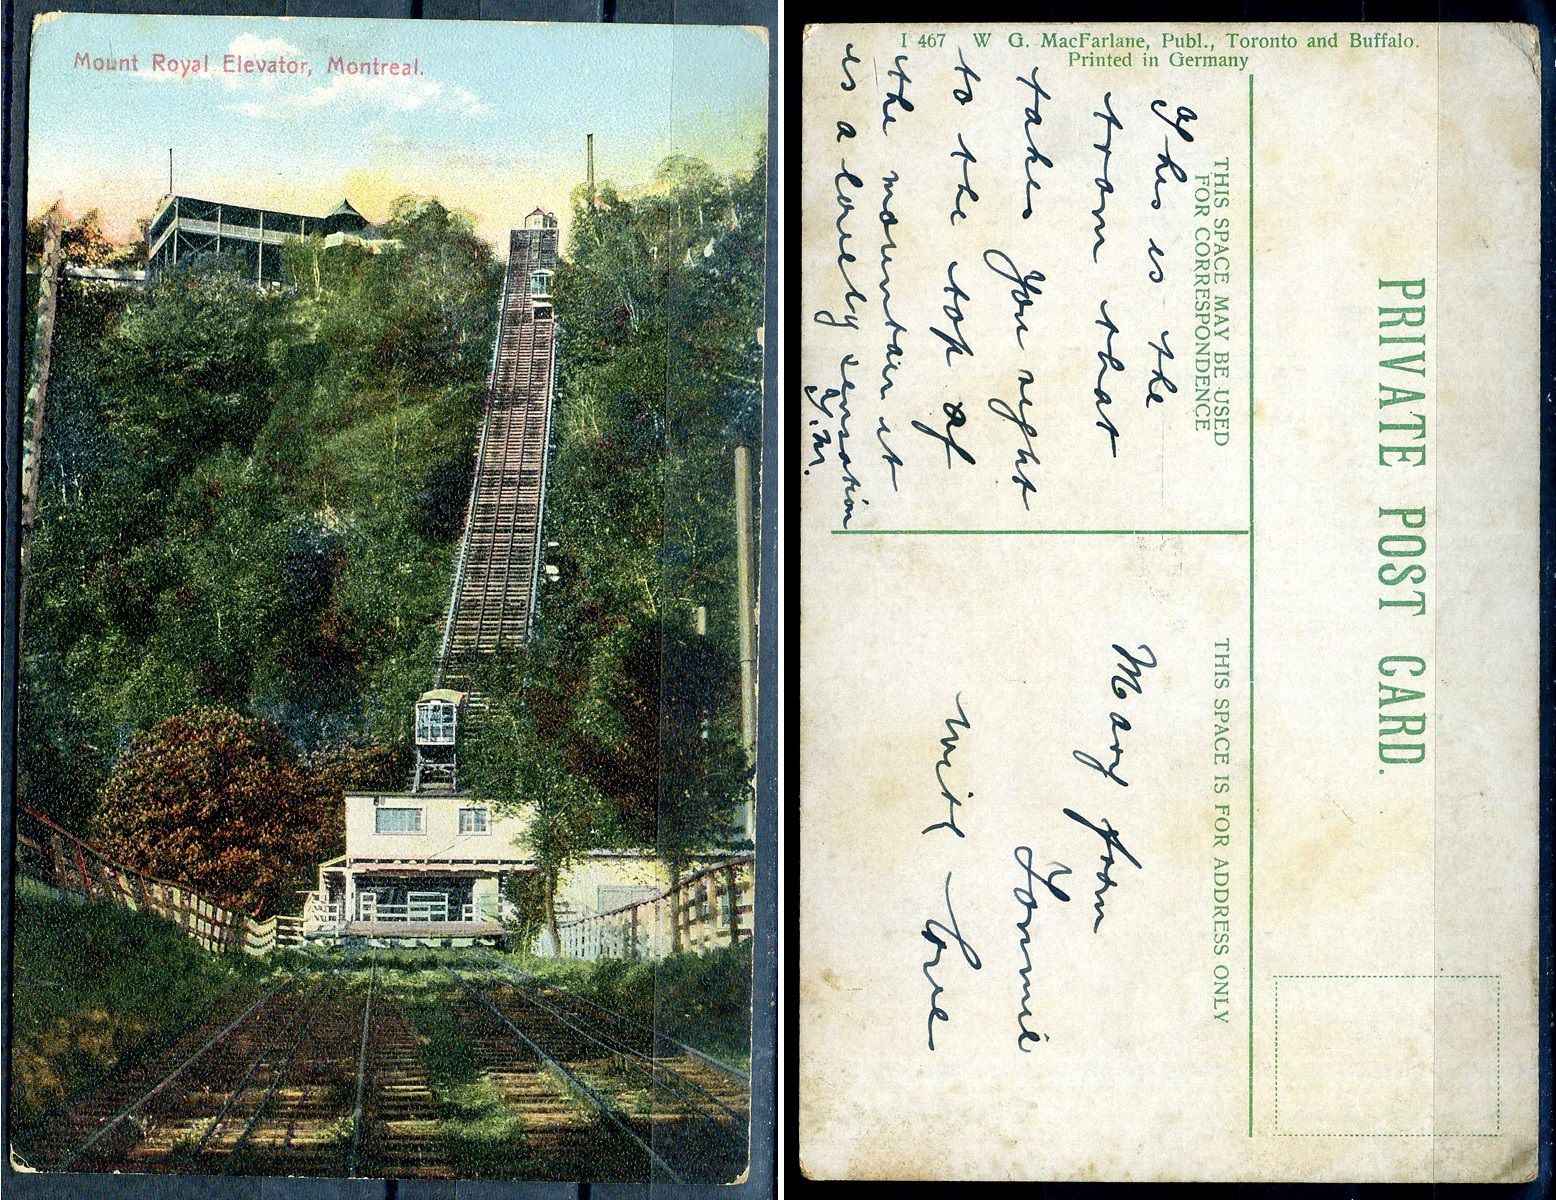 Mount Royal Elevator, Montreal.
I 467 W G. MacFarlane, Publ., Toronto and Buffalo.
Printed in Germany
PRIVATE POST CARD.
THIS SPACE MAY BE USED
FOR CORRESPONDENCE
This is the
tram that
takes you right
to the top of
the mountain it
is a lovely sensation
THIS SPACE IS FOR ADDRESS ONLY
Mary from
with love